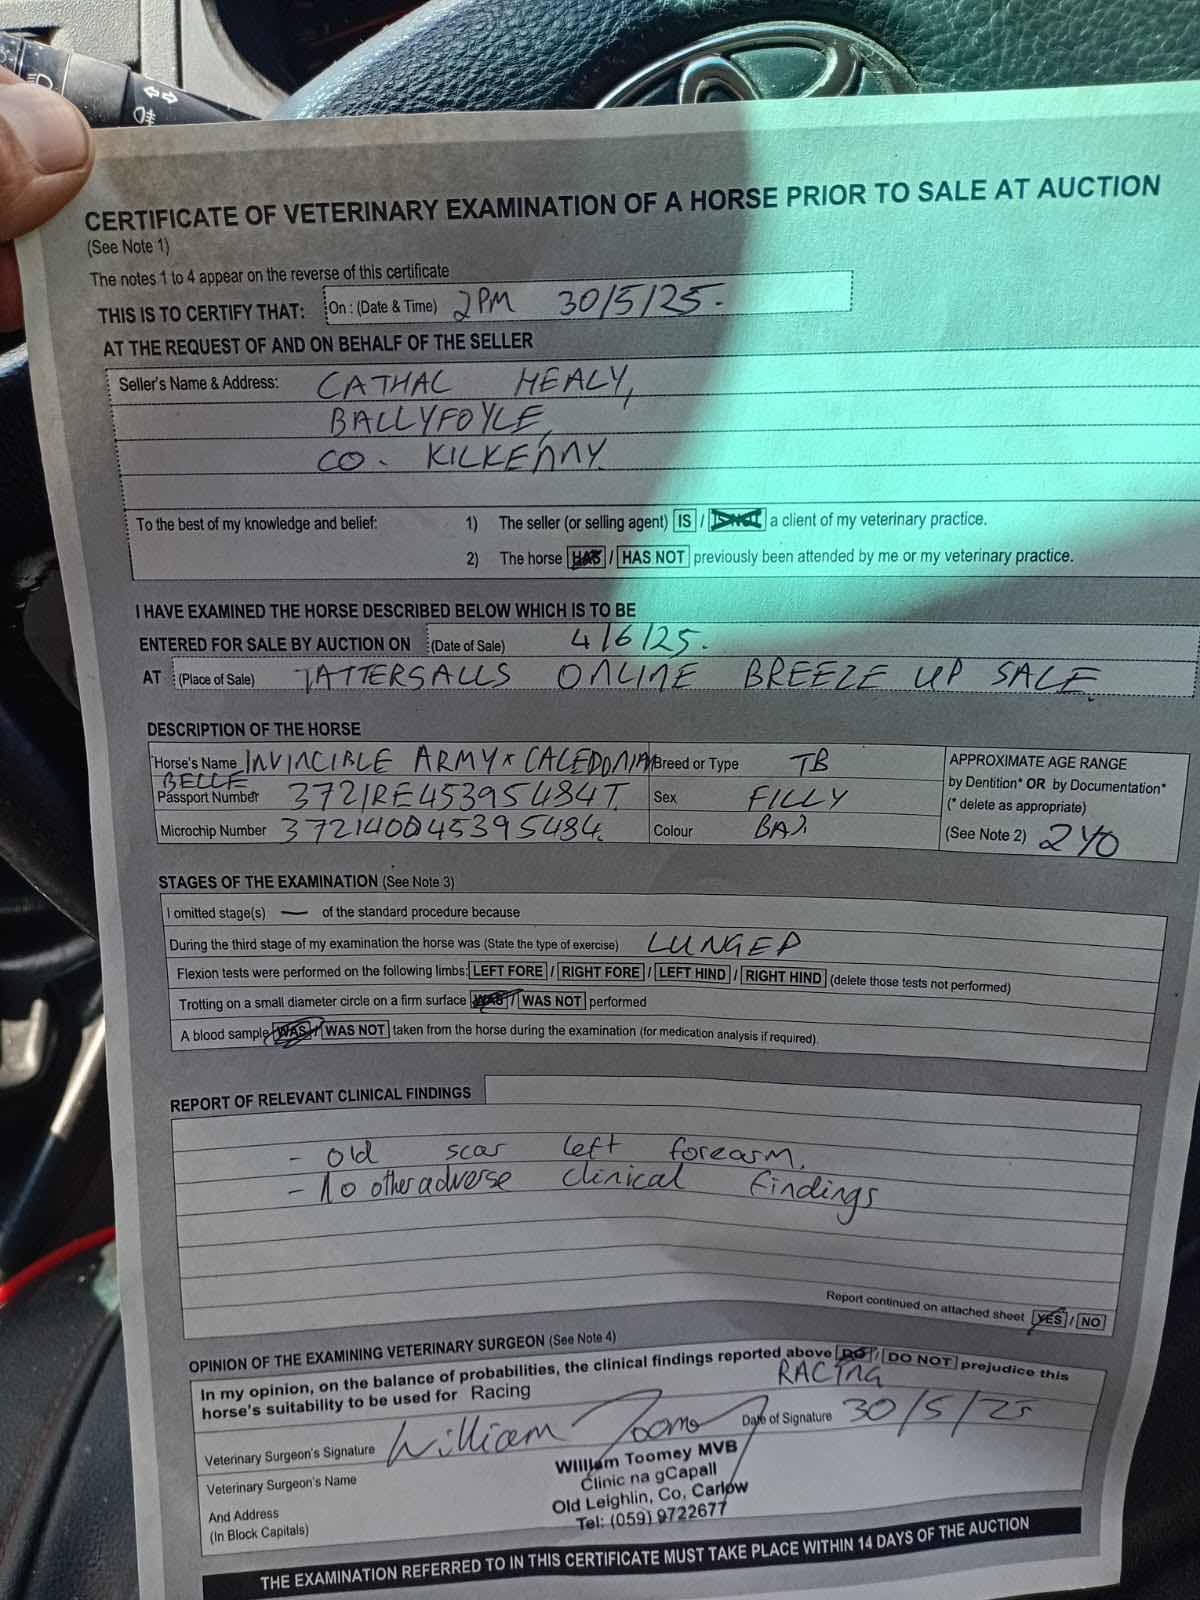 CERTIFICATE OF VETERINARY EXAMINATION OF A HORSE PRIOR TO SALE AT AUCTION
(See Note 1)
The notes 1 to 4 appear on the reverse of this certificate
THIS IS TO CERTIFY THAT: On : (Date & Time) 2PM 30/5/25.
AT THE REQUEST OF AND ON BEHALF OF THE SELLER
Seller's Name & Address: CATHAL HEALY,
BALLYFOYLE,
CO. KILKENNY.
To the best of my knowledge and belief: 1) The seller (or selling agent) IS / IS NOT a client of my veterinary practice.
2) The horse HAS / HAS NOT previously been attended by me or my veterinary practice.
I HAVE EXAMINED THE HORSE DESCRIBED BELOW WHICH IS TO BE
ENTERED FOR SALE BY AUCTION ON (Date of Sale) 4/6/25.
AT (Place of Sale) TATTERSALLS ONLINE BREEZE UP SALE.
DESCRIPTION OF THE HORSE
Horse's Name INVINCIBLE ARMY x CALEDONIA Breed or Type TB APPROXIMATE AGE RANGE
BELLE by Dentition* OR by Documentation*
Passport Number 372IRE45395484T. Sex FILLY (* delete as appropriate)
Microchip Number 372140045395484. Colour BAY. (See Note 2) 2YO
STAGES OF THE EXAMINATION (See Note 3)
I omitted stage(s) — of the standard procedure because
During the third stage of my examination the horse was (State the type of exercise) LUNGED
Flexion tests were performed on the following limbs: LEFT FORE / RIGHT FORE / LEFT HIND / RIGHT HIND (delete those tests not performed)
Trotting on a small diameter circle on a firm surface WAS / WAS NOT performed
A blood sample WAS / WAS NOT taken from the horse during the examination (for medication analysis if required).
REPORT OF RELEVANT CLINICAL FINDINGS
- old scar left forearm.
- No other adverse clinical findings
Report continued on attached sheet YES / NO
OPINION OF THE EXAMINING VETERINARY SURGEON (See Note 4)
In my opinion, on the balance of probabilities, the clinical findings reported above DO / DO NOT prejudice this
horse's suitability to be used for Racing RACING
Veterinary Surgeon's Signature William Toomey Date of Signature 30/5/25
Veterinary Surgeon's Name William Toomey MVB
Clinic na gCapall
And Address Old Leighlin, Co, Carlow
(In Block Capitals) Tel: (059) 9722677
THE EXAMINATION REFERRED TO IN THIS CERTIFICATE MUST TAKE PLACE WITHIN 14 DAYS OF THE AUCTION